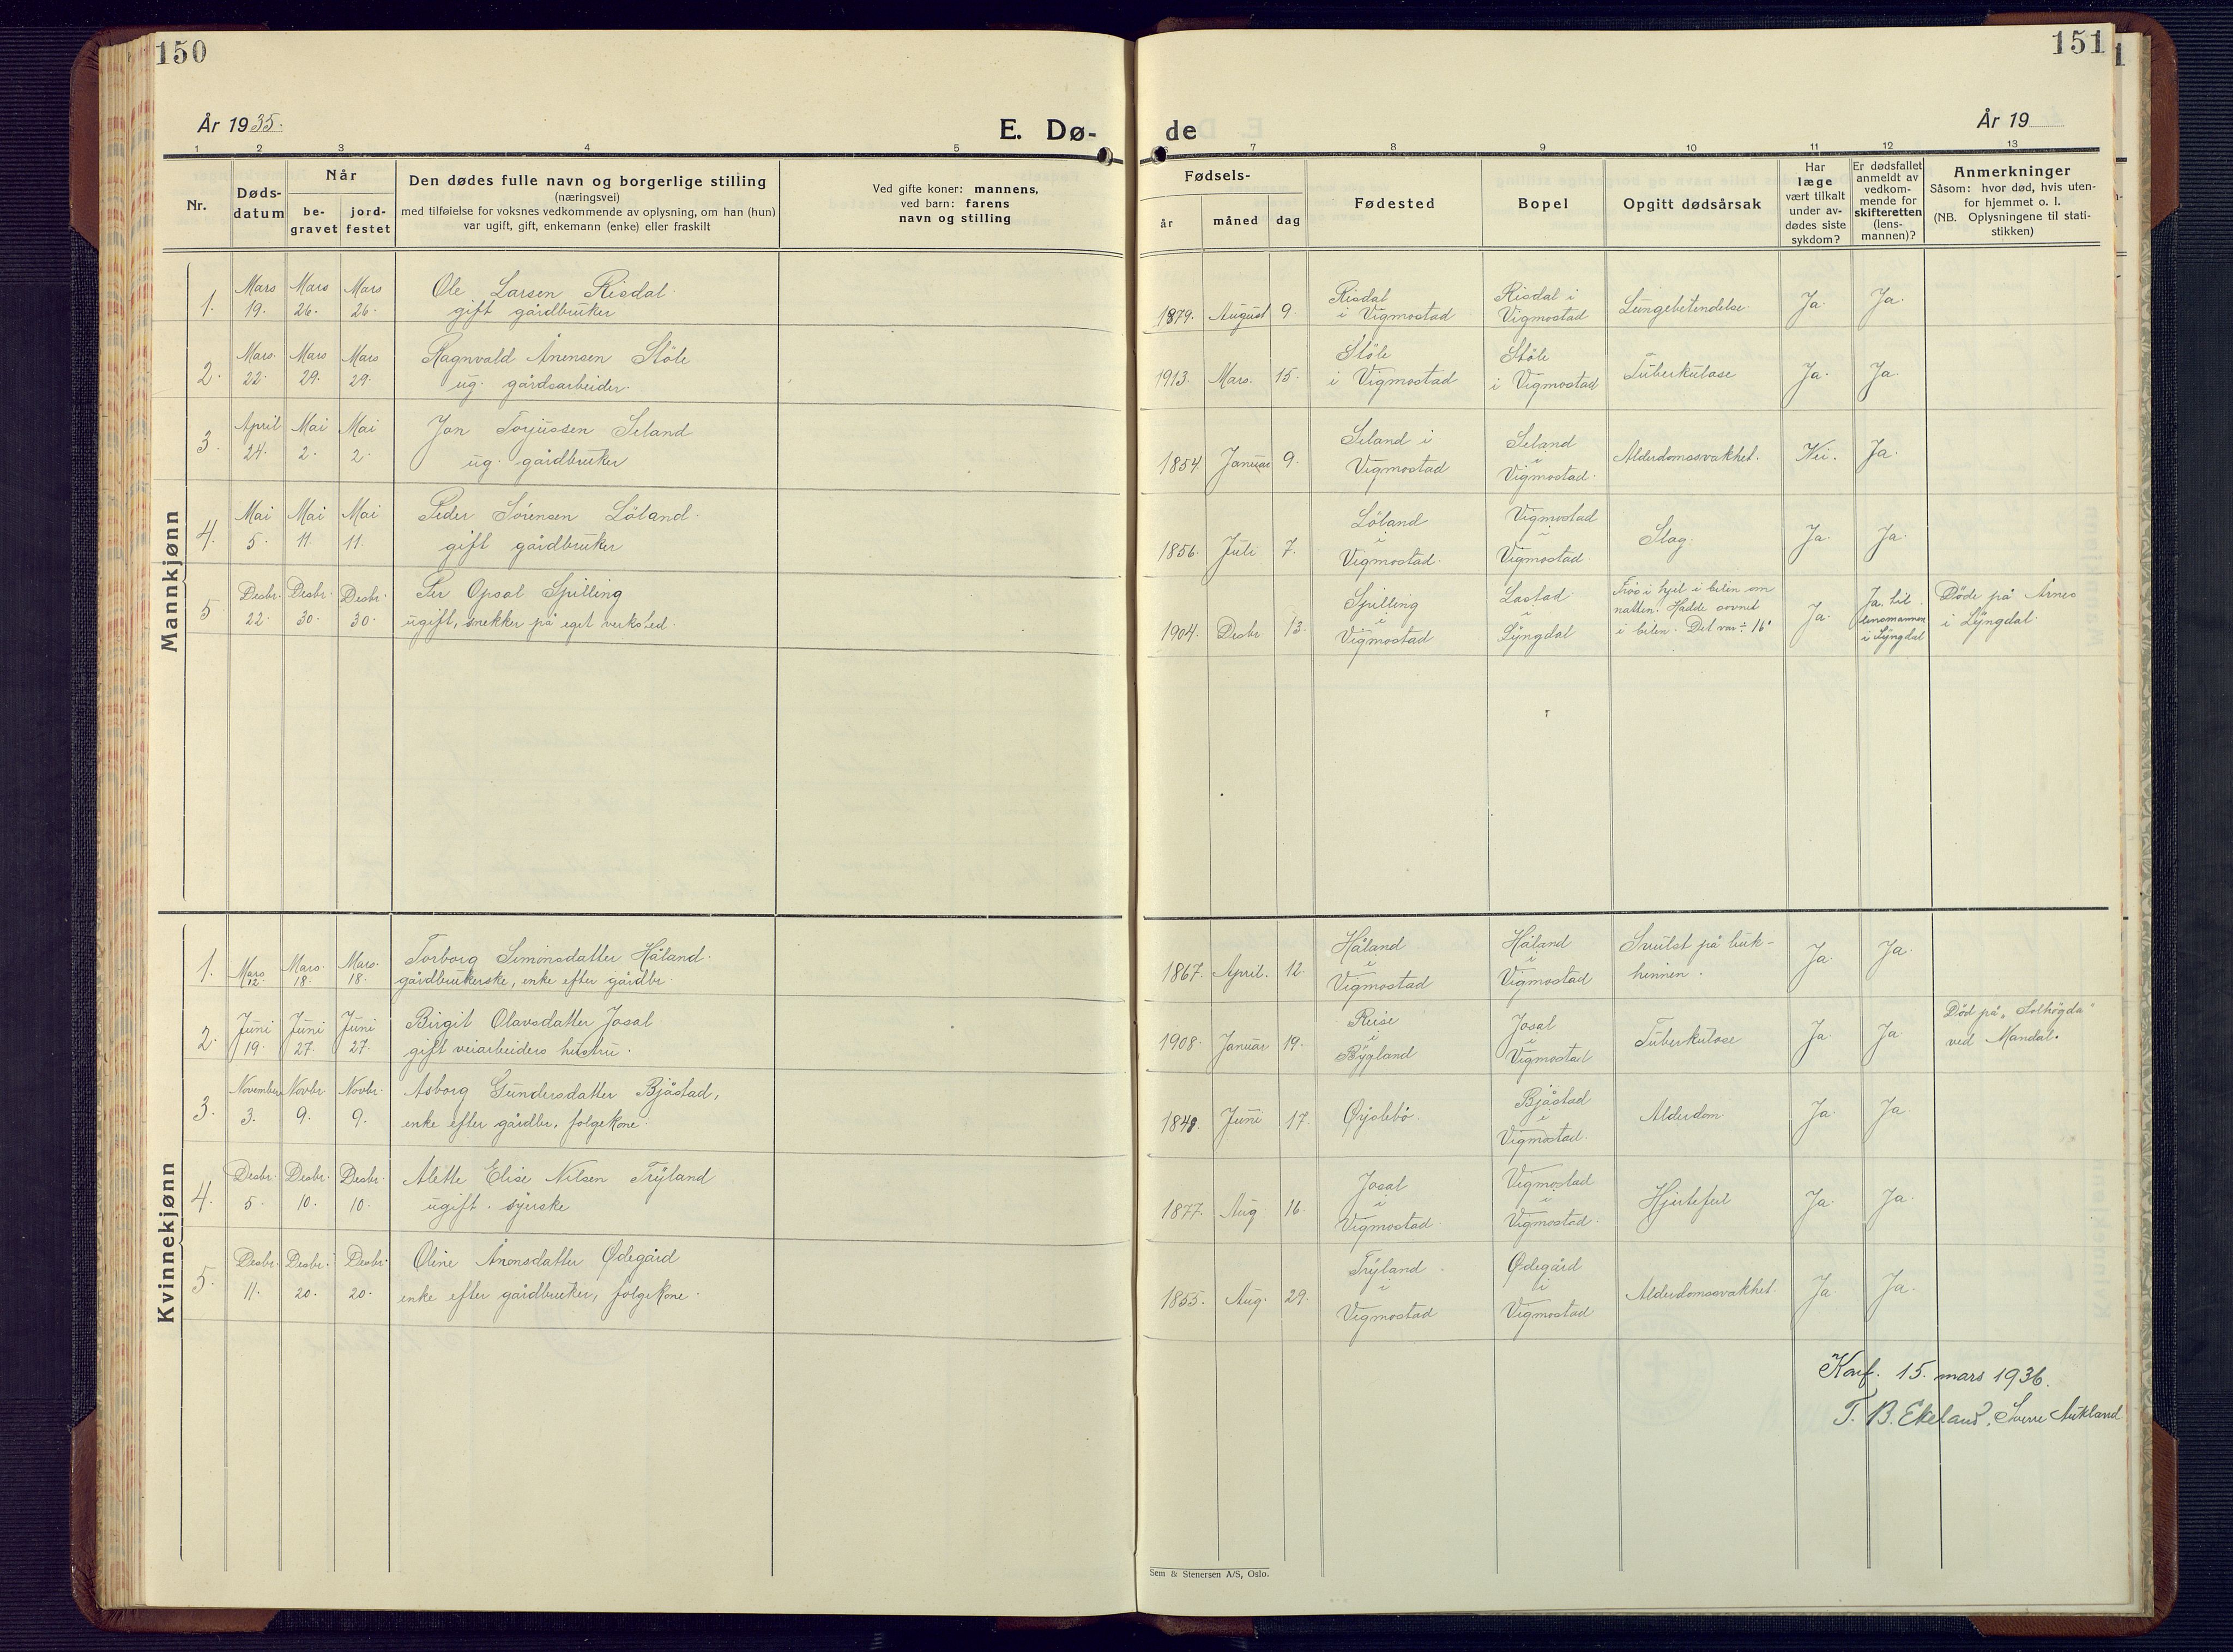 150
År 1935.
E. Dø-
1 2 3 4 5
Nr.
Døds-
datum
Når
be-
gravet
jord-
festet
Den dødes fulle navn og borgerlige stilling
(næringsvei)
med tilføielse for voksnes vedkommende av oplysning, om han (hun)
var ugift, gift, enkemann (enke) eller fraskilt
Ved gifte koner: mannens,
ved barn: farens
navn og stilling
Mannkjønn
1. Mars 19. Mars 26. Mars 26. Ole Larsen Risdal.
gift gårdbruker
2. Mars 22. Mars 29. Mars 29. Ragnvald Ånensen Støle
ug. gårdsarbeider.
3. April 24. Mai 2. Mai 2. Jon Torjussen Seland
ug. gårdbruker
4. Mai 5. Mai 11. Mai 11. Peder Sørensen Løland.
gift gårdbruker
5 Desbr. 22. Desbr. 30. Desbr. 30. Per Opsal Spilling
ugift, snekker på eget verksted.
Kvinnekjønn
1. Mars 12. Mars. 18. Mars. 18. Torborg Simonsdatter Håland.
gårdbrukerske, enke efter gårdbr.
2. Juni 19. Juni 27. Juni 27. Birgit Olavsdatter Josal
gift veiarbeiders hustru.
3. November 3. Novbr 9. Novbr. 9. Asborg Gundersdatter Bjåstad,
enke efter gårdbr, folgekone.
4. Desbr. 5. Desbr. 10. Desbr. 10. Alette Elise Nilsen Tryland
ugift. syerske
5. Desbr. 11. Desbr. 20. Desbr. 20. Oline Ånonsdatter Ødegård
enke efter gårdbruker, folgekone.
151
de
År 19
7 8 9 10 11 12 13
Fødsels-
år måned dag
Fødested
Bopel
Opgitt dødsårsak
Har
læge
vært tilkalt
under av-
dødes siste
sykdom?
Er dødsfallet
anmeldt av
vedkom-
mende for
skifteretten
(lens-
mannen)?
Anmerkninger
Såsom: hvor død, hvis uten-
for hjemmet o. l.
(NB. Oplysningene til stati-
stikken)
1879. August 9. Risdal i Vigmostad Risdal i Vigmostad Lungebetendelse. Ja. Ja.
1913. Mars. 15. Støle i Vigmostad Støle i Vigmostad Tuberkulose Ja. Ja.
1854. Januar 9. Seland i Vigmostad Seland i Vigmostad. Alderdomssvakhet. Nei. Ja.
1856. Juli 7. Løland i Vigmostad. Vigmostad i Vigmostad. Slag. Ja. Ja.
1904. Desbr 13. Spilling i Vigmostad Lastad i Lyngdal Frøs i hjel i bilen om
natten. Hadde sovnet
i bilen. Det var ÷ 16° Ja. Ja. til
lensmannen
i Lyngdal Døde på Årnes
i Lyngdal.
1867. April. 12. Håland i Vigmostad Håland i Vigmostad Svulst på buk-
hinnen. Ja. Ja.
1908. Januar 19. Reise i Bygland Josal i Vigmostad Tuberkulose Ja. Ja. Død på "Solhøgda"
ved Mandal.
1849. Juni 17. Øyslebø. Bjåstad i Vigmostad. Alderdom. Ja. Ja.
1877. Aug 16. Josal i Vigmostad. Vigmostad i Vigmostad. Hjertefeil Ja. Ja.
1855. Aug. 29. Tryland i Vigmostad Ødegård i Vigmostad Alderdomssvakhet. Ja. Ja.
Konf. 15. mars 1936.
T. B. Ekeland. Sverre Aukland
Sem & Stenersen A/S, Oslo.